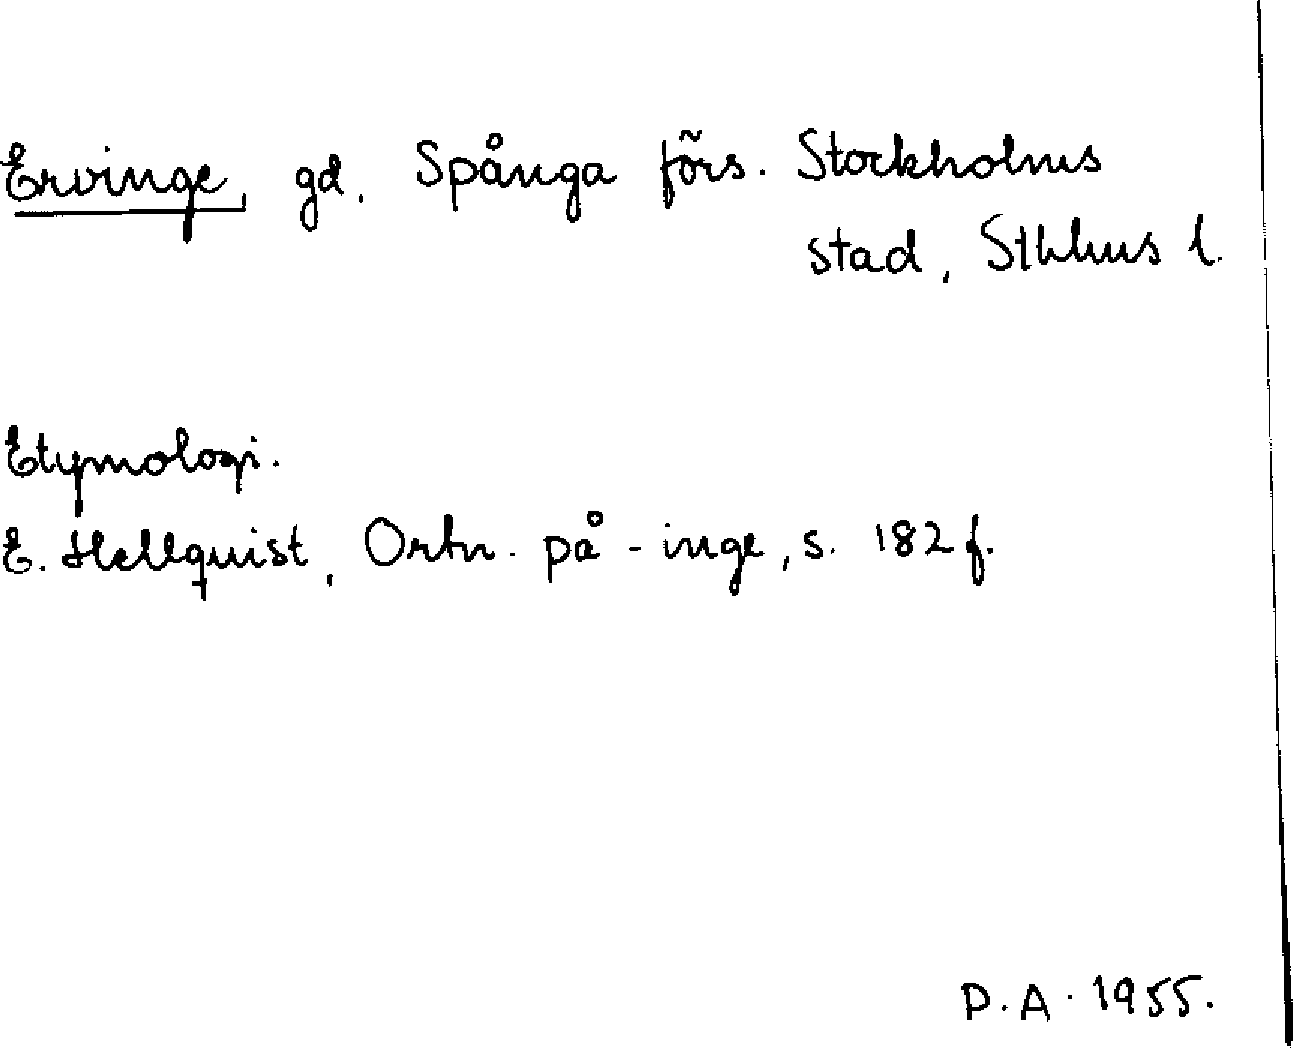 Ervinge, gd. Spånga förs. Stockholms
stad, Sthlms l.
Etymologi.
E. Hellquist, Ortn. på -inge, s. 182 f.
P.A. 1955.